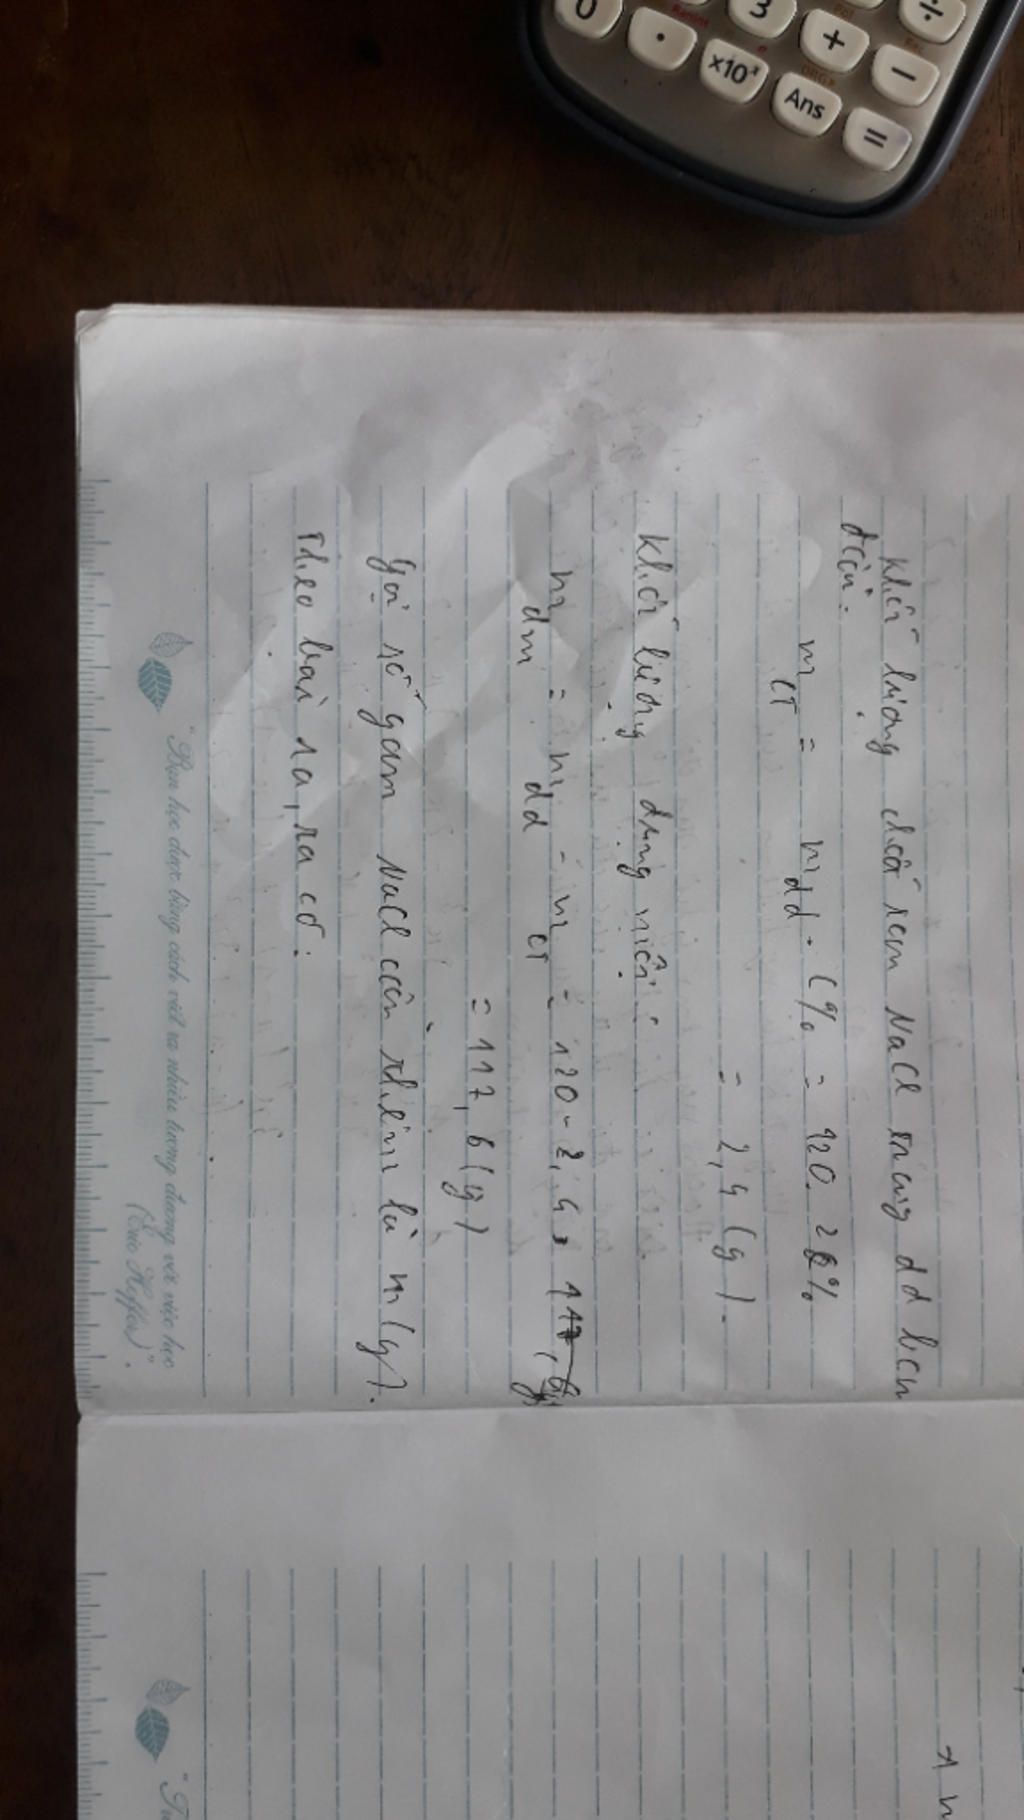 0
.
3
+
÷
×10ˣ
Ans
−
=
Khối lượng chất tan NaCl trong dd ban
đầu:
m_ct = m_dd . C% = 120. 2%
= 2,4 (g).
Khối lượng dung môi:
m_dm = m_dd - m_ct = 120 - 2,4
= 117,6 (g)
Gọi số gam NaCl cần thêm là m (g).
Theo bài ra, ta có:
"Bạn học được bằng cách viết ra nhiều tương đương với việc học
(Eric Hoffer)".